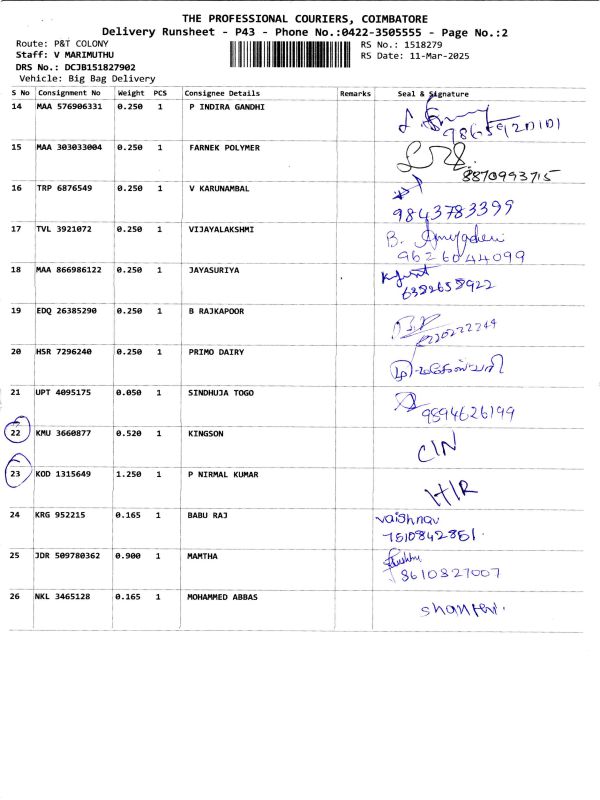 THE PROFESSIONAL COURIERS, COIMBATORE
Delivery Runsheet - P43 - Phone No.:0422-3505555 - Page No.:2
Route: P&T COLONY
RS No.: 1518279
Staff: V MARIMUTHU
RS Date: 11-Mar-2025
DRS No.: DCJB151827902
Vehicle: Big Bag Delivery
S No Consignment No Weight PCS Consignee Details Remarks Seal & Signature
14 MAA 576906331 0.250 1 P INDIRA GANDHI
15 MAA 303033004 0.250 1 FARNEK POLYMER
8870993715
16 TRP 6876549 0.250 1 V KARUNAMBAL
9843783399
17 TVL 3921072 0.250 1 VIJAYALAKSHMI B.
9626044099
18 MAA 866986122 0.250 1 JAYASURIYA
6382658922
19 EDQ 26385290 0.250 1 B RAJKAPOOR
20 HSR 7296240 0.250 1 PRIMO DAIRY
21 UPT 4095175 0.050 1 SINDHUJA TOGO
9894626199
22 KMU 3660877 0.520 1 KINGSON
C/N
23 KOD 1315649 1.250 1 P NIRMAL KUMAR
H/R
24 KRG 952215 0.165 1 BABU RAJ vaishnav
7510842851.
25 JDR 509780362 0.900 1 MAMTHA
8610327007
26 NKL 3465128 0.165 1 MOHAMMED ABBAS
shanthi.